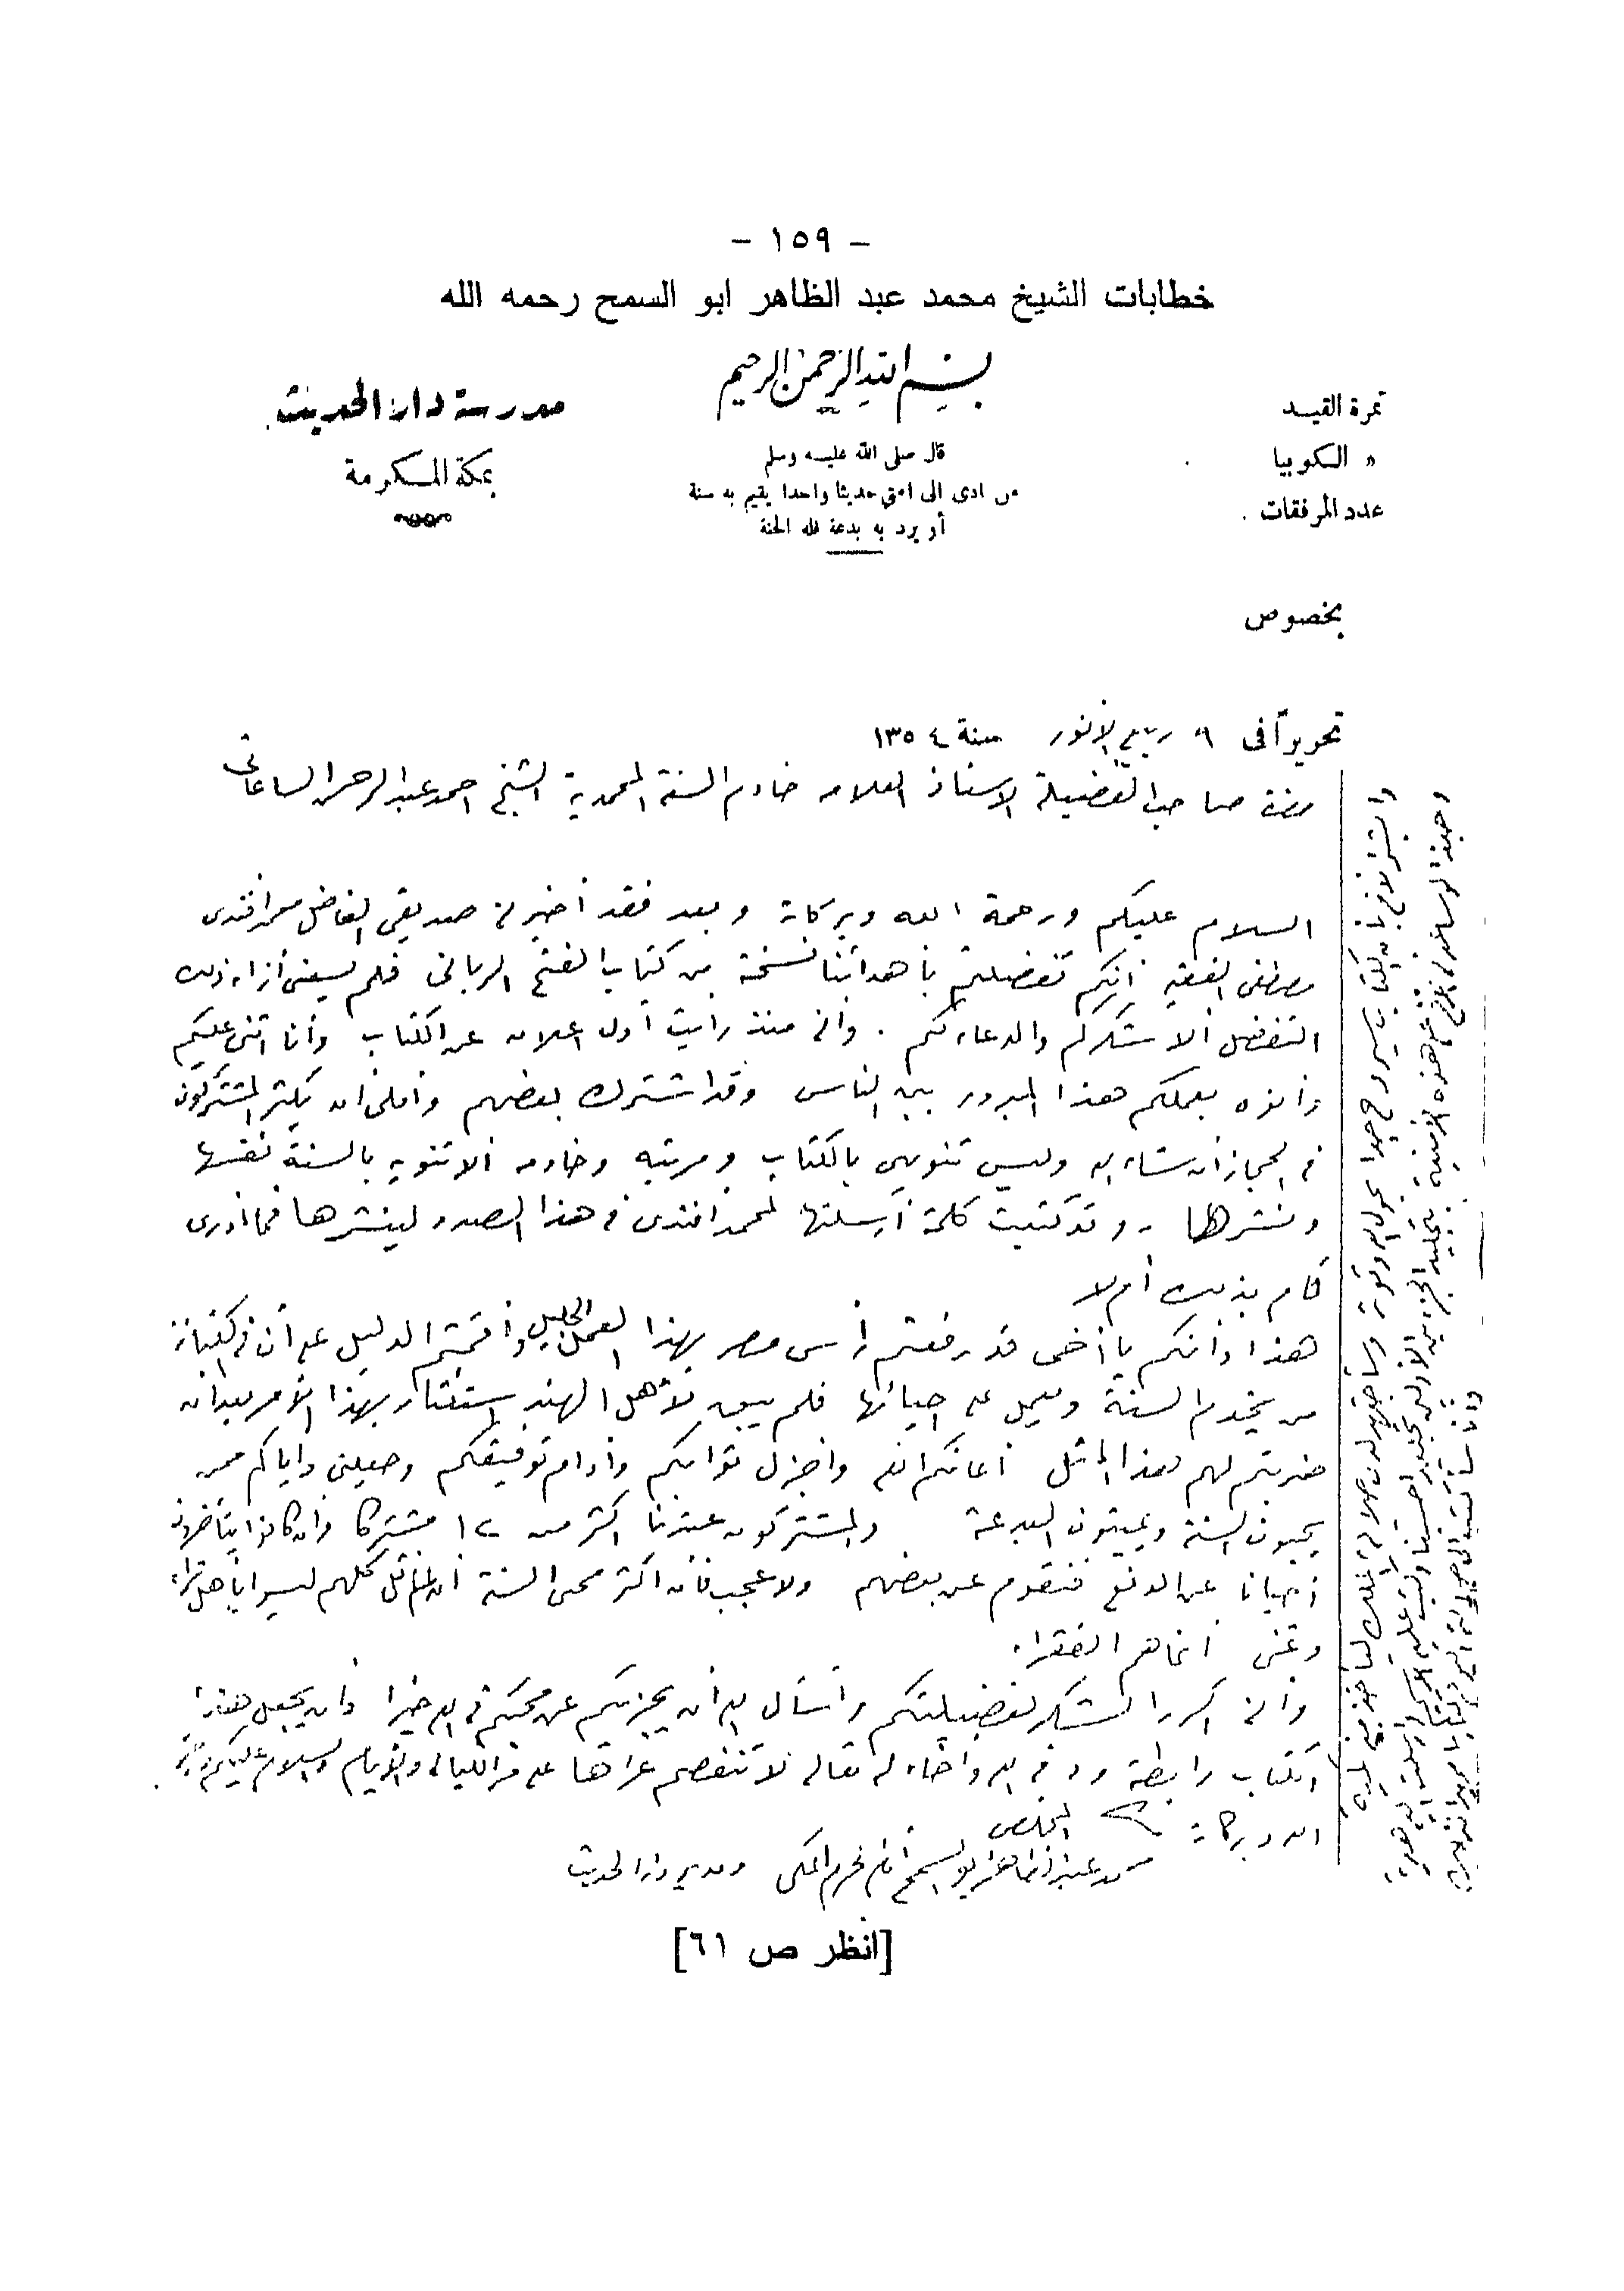 - ١٥٩ -
خطابات الشيخ محمد عبد الظاهر ابو السمح رحمه الله
بسم الله الرحمن الرحيم
مدرسة دار الحديث
بمكة المكرمة
قال صلى الله عليه وسلم
من ادى الى امتي حديثا واحدا يقيم به سنة
أو يرد به بدعة فله الجنة
نمرة القيد
» الكوبيا
عدد المرفقات
بخصوص
تحريرآ فى ٩ ربيع الأنور سنة ١٣٥٤
حضرة صاحب الفضيلة الاستاذ العلامه خادم السنة المحمدية الشيخ احمد عبد الرحمن الساعاتى
السلام عليكم ورحمة الله وبركاته وبعد فقد أخبرنى صديقى الفاضل محمد افندى
مصطفى الفقيه أنكم تفضلتم باهدائنا نسخة من كتاب الفتح الربانى فلم يسعنى أزاء ذلك
التفضل ألا شكركم والدعاء لكم . وانى منذ رأيت أول اعلان عن الكتاب وأنا اثنى عليكم
وأنوه بعملكم هذا المبرور بين الناس وقد اشترك بعضهم وأملى أن يكثر المشتركون
فى الحجاز ان شاء الله وليس تنويهى بالكتاب ومرتبه وخادمه ألا تنويه بالسنة نفسها
ونشرها . وقد كتبت كلمة أرسلتها لمحمد افندى فى هذا الصدد لينشرها فما أدرى
قام بذلك أم لا
هذا وانكم يا أخى قد رفعتم رأس مصر بهذا العمل الجليل وأقمتم الدليل على أن فى كنانة
من يخدم السنة ويعمل على احيائها فلم يبق لأهل الهند استئثار بهذا الأمر بعد أن
ضربتم لهم هذا المثل أعانكم الله واجزل ثوابكم وأدام توفيقكم وجعلنى واياكم ممن
يحيون السنة ويميتون البدعة والمشتركون عندنا اكثر من ١٢ مشتركا وان كانوا يتأخرون
أحيانا عن الدفع فنقوم عن بعضهم ولا عجب فأن اكثر محبى السنة ان لم أقل كلهم ليسوا بأهل ثراء
وغنى أنما هم الفقراء
وأنى اكرر الشكر لفضيلتكم وأسأل الله أن يجزيكم عن محبكم فى الله خيرا وأن يجعل هذا
الكتاب رابطة ود فى الله واخاء له تعالى لا تنفصم عراها على مر الليالى والأيام والسلام عليكم ورحمة
الله وبركاته
المخلص
محمد عبد الظاهر ابو السمح أمام الحرم المكى ومدير دار الحديث
[انظر ص ٦١]